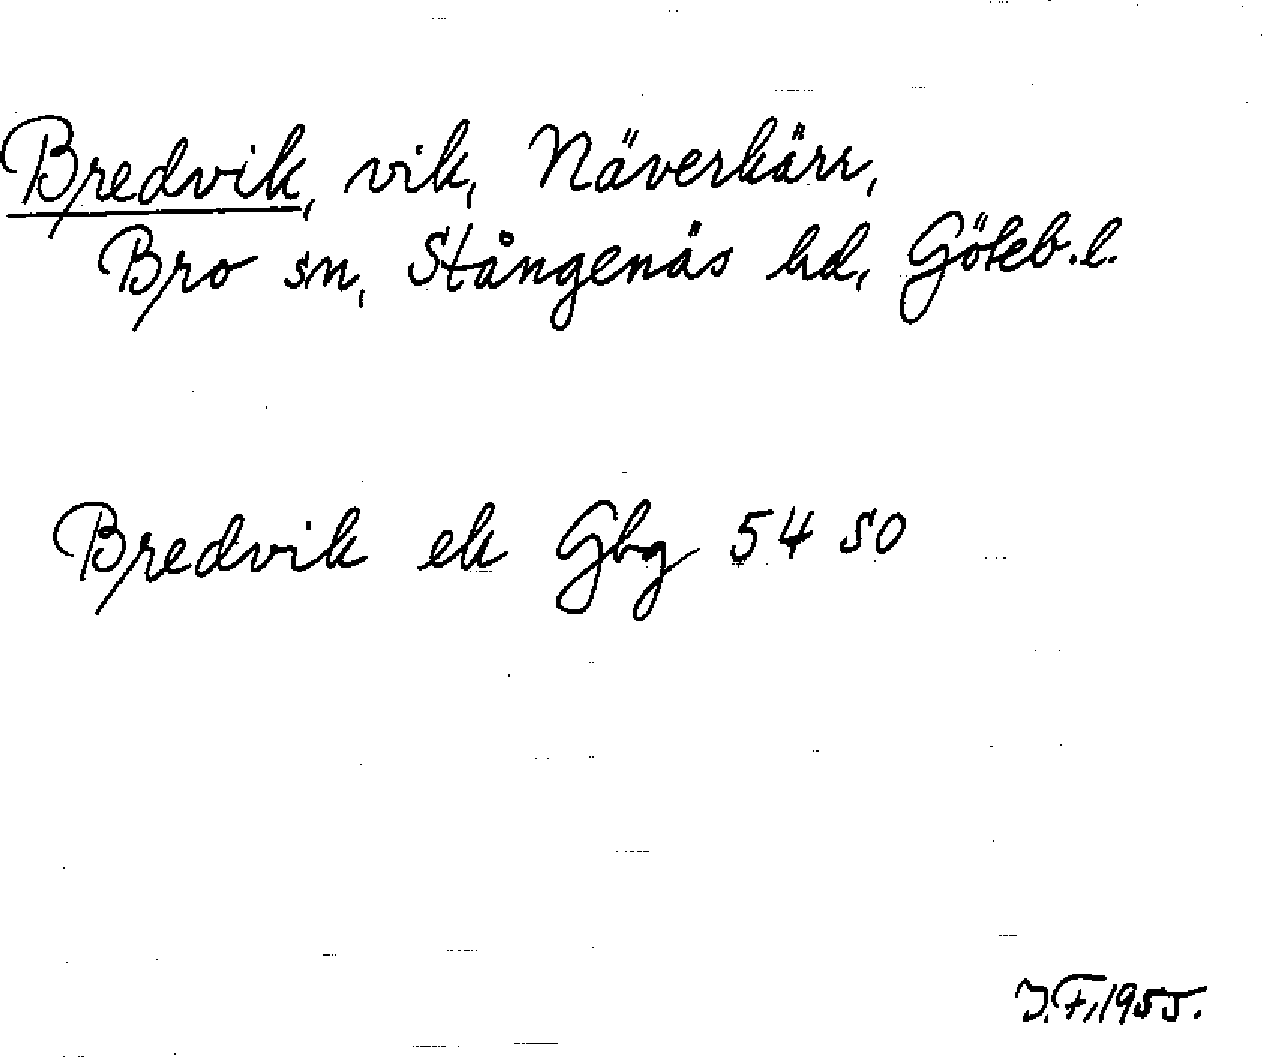 Bredvik, vik, Näverkärr,
Bro sn, Stångenäs hd, Göteb. l.
Bredvik ek Gbg 54 SO
J.F. 1955.